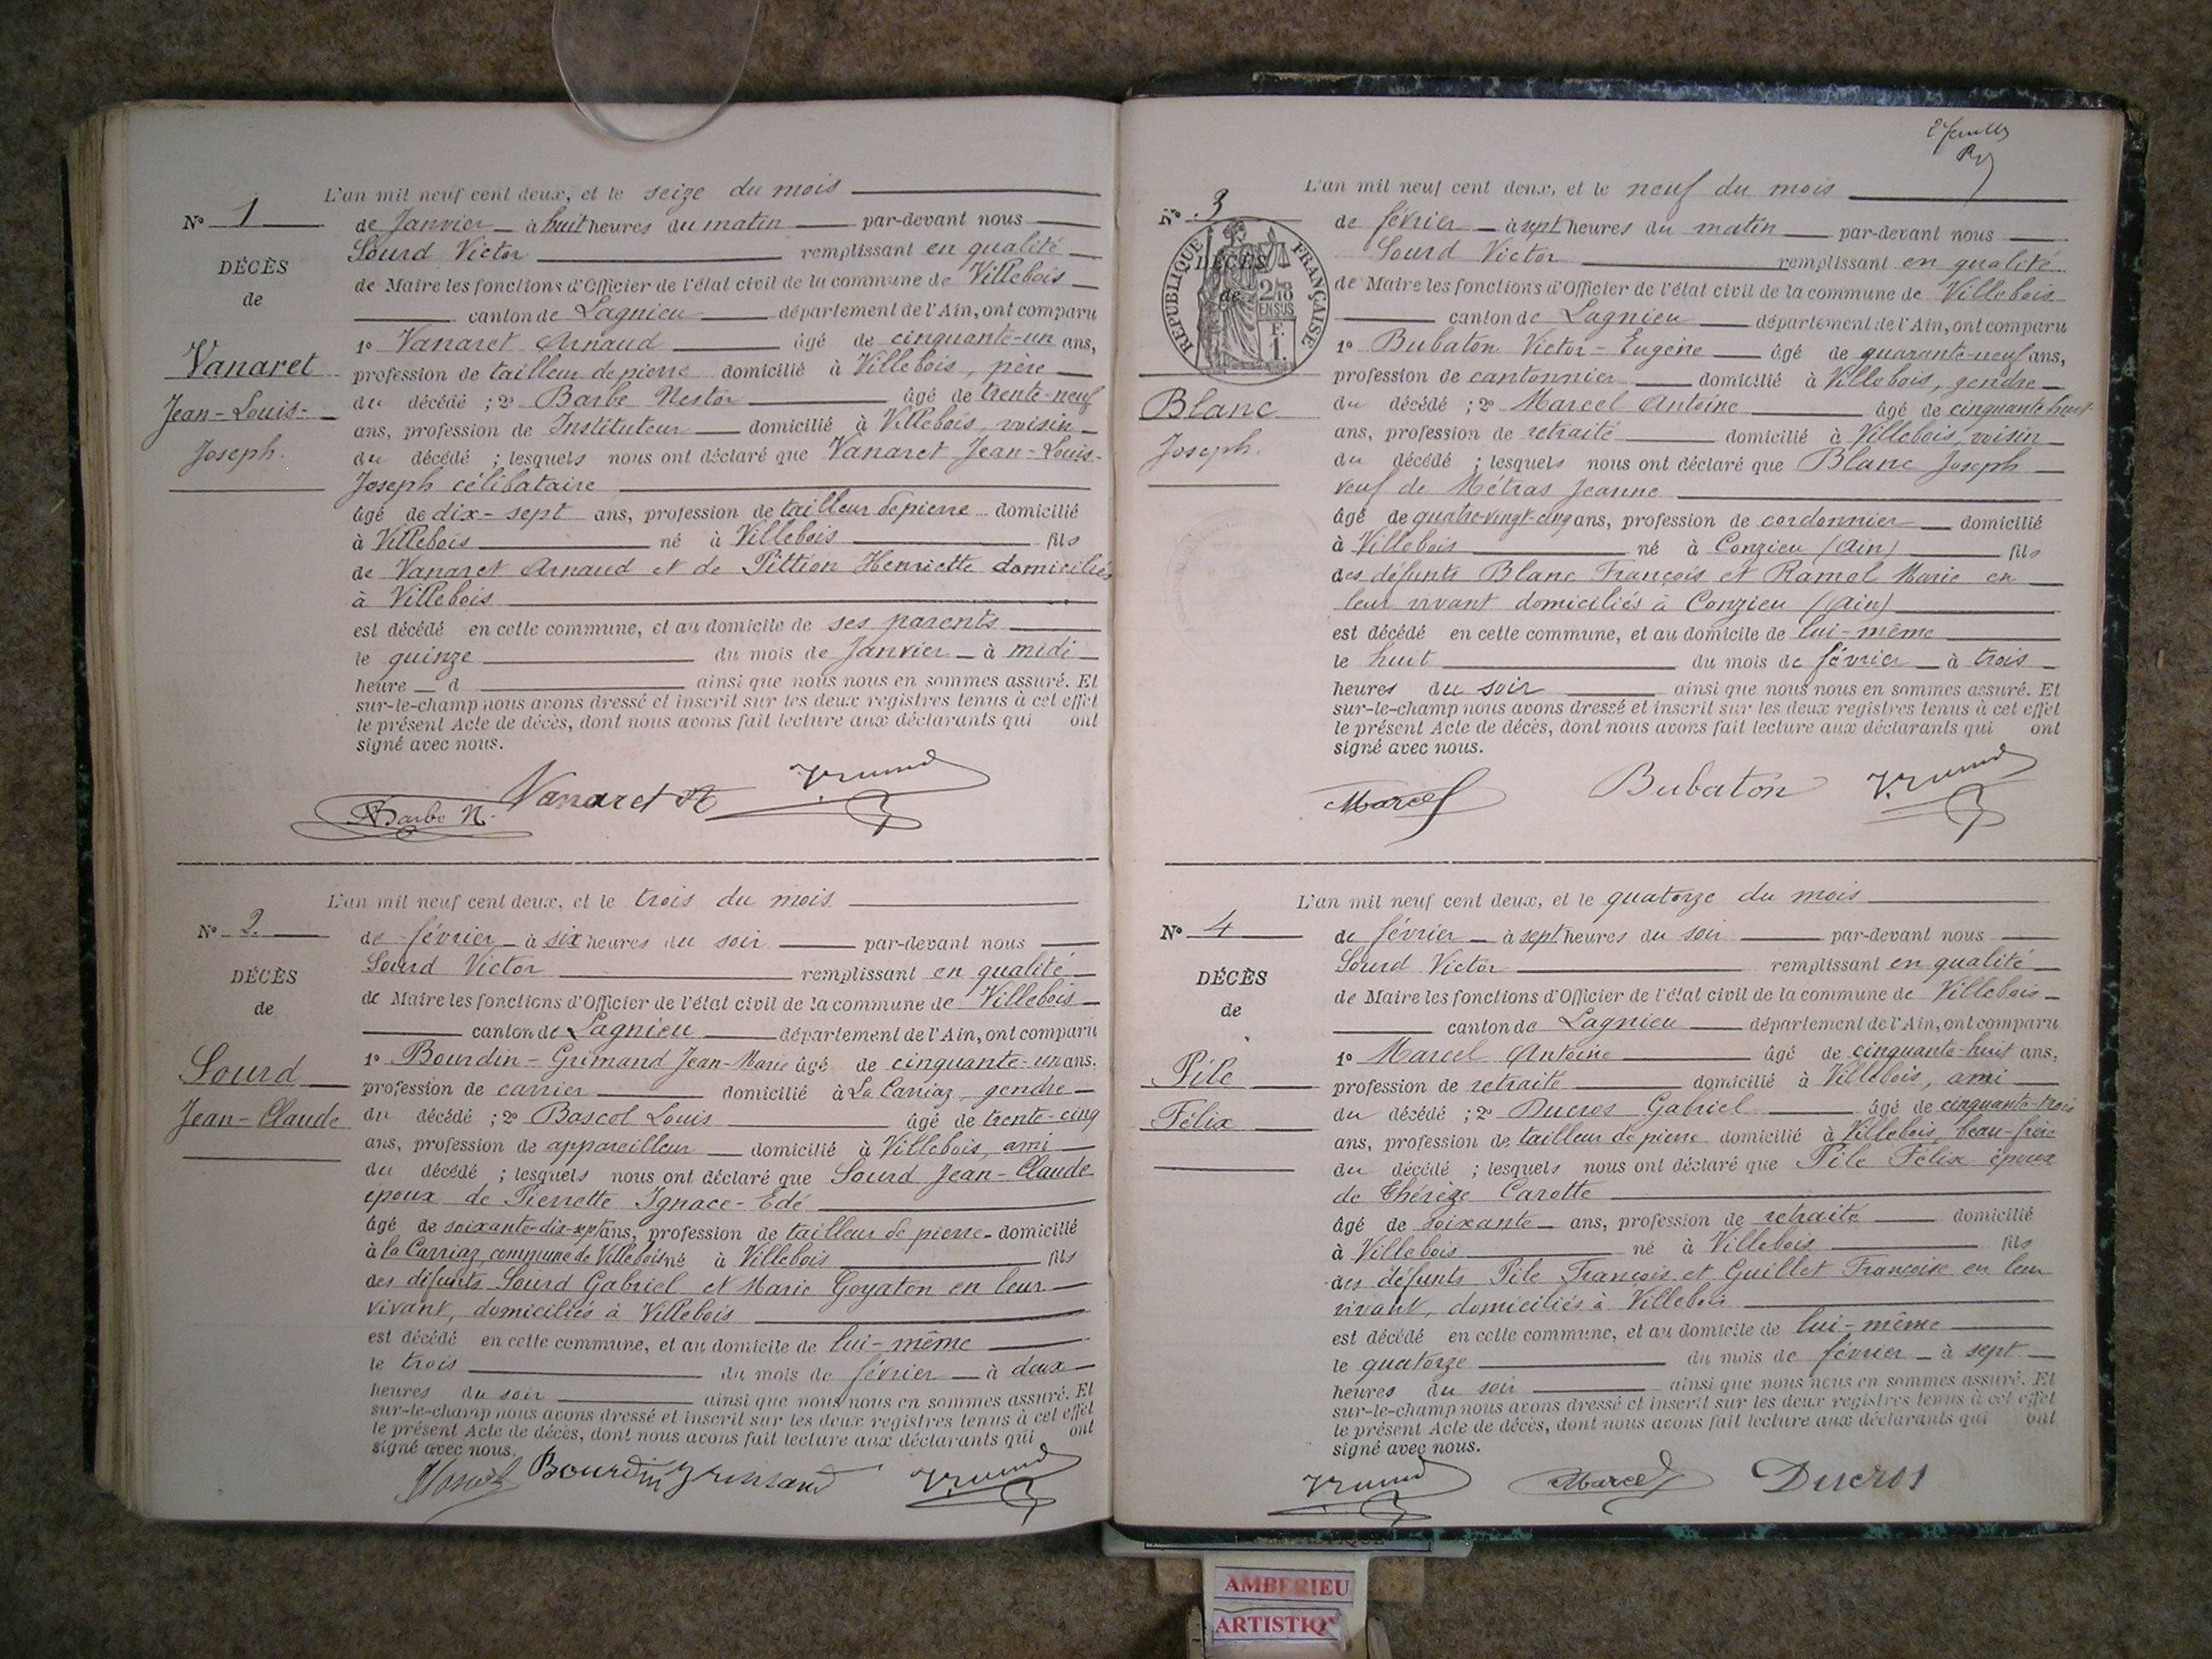 L'an mil neuf cent deux, et le seize du mois
N° 1
de Janvier à huit heures du matin par-devant nous
Sourd Victor remplissant en qualité
DÉCÈS
de Maire les fonctions d'Officier de l'état civil de la commune de Villebois
de
canton de Lagnieu département de l'Ain, ont comparu
1° Vanaret Arnaud âgé de cinquante-un ans,
Vanaret
profession de tailleur de pierre domicilié à Villebois, père
Jean-Louis-
du décédé ; 2° Barbe Nestor âgé de trente-neuf
ans, profession de Instituteur domicilié à Villebois, voisin
Joseph.
du décédé ; lesquels nous ont déclaré que Vanaret Jean-Louis-
Joseph célibataire
âgé de dix-sept ans, profession de tailleur de pierre domicilié
à Villebois né à Villebois fils
de Vanaret Arnaud et de Pittion Henriette domiciliés
à Villebois
est décédé en cette commune, et au domicile de ses parents
le quinze du mois de Janvier à midi
heure d ainsi que nous nous en sommes assuré. Et
sur-le-champ nous avons dressé et inscrit sur les deux registres tenus à cet effet
le présent Acte de décès, dont nous avons fait lecture aux déclarants qui ont
signé avec nous.
Barbe N. Vanaret
L'an mil neuf cent deux, et le trois du mois
N° 2.
de février à six heures du soir par-devant nous
Sourd Victor remplissant en qualité
DÉCÈS
de Maire les fonctions d'Officier de l'état civil de la commune de Villebois
de
canton de Lagnieu département de l'Ain, ont comparu
1° Bourdin-Grimand Jean-Marie âgé de cinquante-un ans,
Sourd
profession de carrier domicilié à La Carriaz, gendre
Jean-Claude
du décédé ; 2° Bascol Louis âgé de trente-cinq
ans, profession de appareilleur domicilié à Villebois, ami
du décédé ; lesquels nous ont déclaré que Sourd Jean-Claude
époux de Pierrette Ignace-Edé
âgé de soixante-dix-sept ans, profession de tailleur de pierre domicilié
à la Carriaz, commune de Villebois né à Villebois fils
des défunts Sourd Gabriel et Marie Goyaton en leur
vivant, domiciliés à Villebois
est décédé en cette commune, et au domicile de lui-même
le trois du mois de février à deux
heures du soir ainsi que nous nous en sommes assuré. Et
sur-le-champ nous avons dressé et inscrit sur les deux registres tenus à cet effet
le présent Acte de décès, dont nous avons fait lecture aux déclarants qui ont
signé avec nous.
Bourdin Grimand
L'an mil neuf cent deux, et le neuf du mois
N° 3
de février à sept heures du matin par-devant nous
Sourd Victor remplissant en qualité
RÉPUBLIQUE FRANÇAISE
DÉCÈS
de Maire les fonctions d'Officier de l'état civil de la commune de Villebois
de
2/10 EN SUS
F. 1.
canton de Lagnieu département de l'Ain, ont comparu
1° Bubaton Victor-Eugène âgé de quarante-neuf ans,
profession de cantonnier domicilié à Villebois, gendre
Blanc
du décédé ; 2° Marcel Antoine âgé de cinquante huit
ans, profession de retraité domicilié à Villebois, voisin
Joseph.
du décédé ; lesquels nous ont déclaré que Blanc Joseph
veuf de Métras Jeanne
âgé de quatre-vingt-cinq ans, profession de cordonnier domicilié
à Villebois né à Conzieu (Ain) fils
des défunts Blanc François et Ramel Marie en
leur vivant domiciliés à Conzieu (Ain)
est décédé en cette commune, et au domicile de lui-même
le huit du mois de février à trois
heures du soir ainsi que nous nous en sommes assuré. Et
sur-le-champ nous avons dressé et inscrit sur les deux registres tenus à cet effet
le présent Acte de décès, dont nous avons fait lecture aux déclarants qui ont
signé avec nous.
Marcel Bubaton
L'an mil neuf cent deux, et le quatorze du mois
N° 4
de février à sept heures du soir par-devant nous
Sourd Victor remplissant en qualité
DÉCÈS
de Maire les fonctions d'Officier de l'état civil de la commune de Villebois
de
canton de Lagnieu département de l'Ain, ont comparu
1° Marcel Antoine âgé de cinquante-huit ans,
Pile
profession de retraité domicilié à Villebois, ami
Félix
du décédé ; 2° Ducros Gabriel âgé de cinquante-trois
ans, profession de tailleur de pierre domicilié à Villebois, beau-frère
du décédé ; lesquels nous ont déclaré que Pile Félix époux
de Thérèze Carotte
âgé de soixante ans, profession de retraité domicilié
à Villebois né à Villebois fils
des défunts Pile François et Guillet Françoise en leur
vivant, domiciliés à Villebois
est décédé en cette commune, et au domicile de lui-même
le quatorze du mois de février à sept
heures du soir ainsi que nous nous en sommes assuré. Et
sur-le-champ nous avons dressé et inscrit sur les deux registres tenus à cet effet
le présent Acte de décès, dont nous avons fait lecture aux déclarants qui ont
signé avec nous.
Marcel Ducros
AMBERIEU
ARTISTIQ